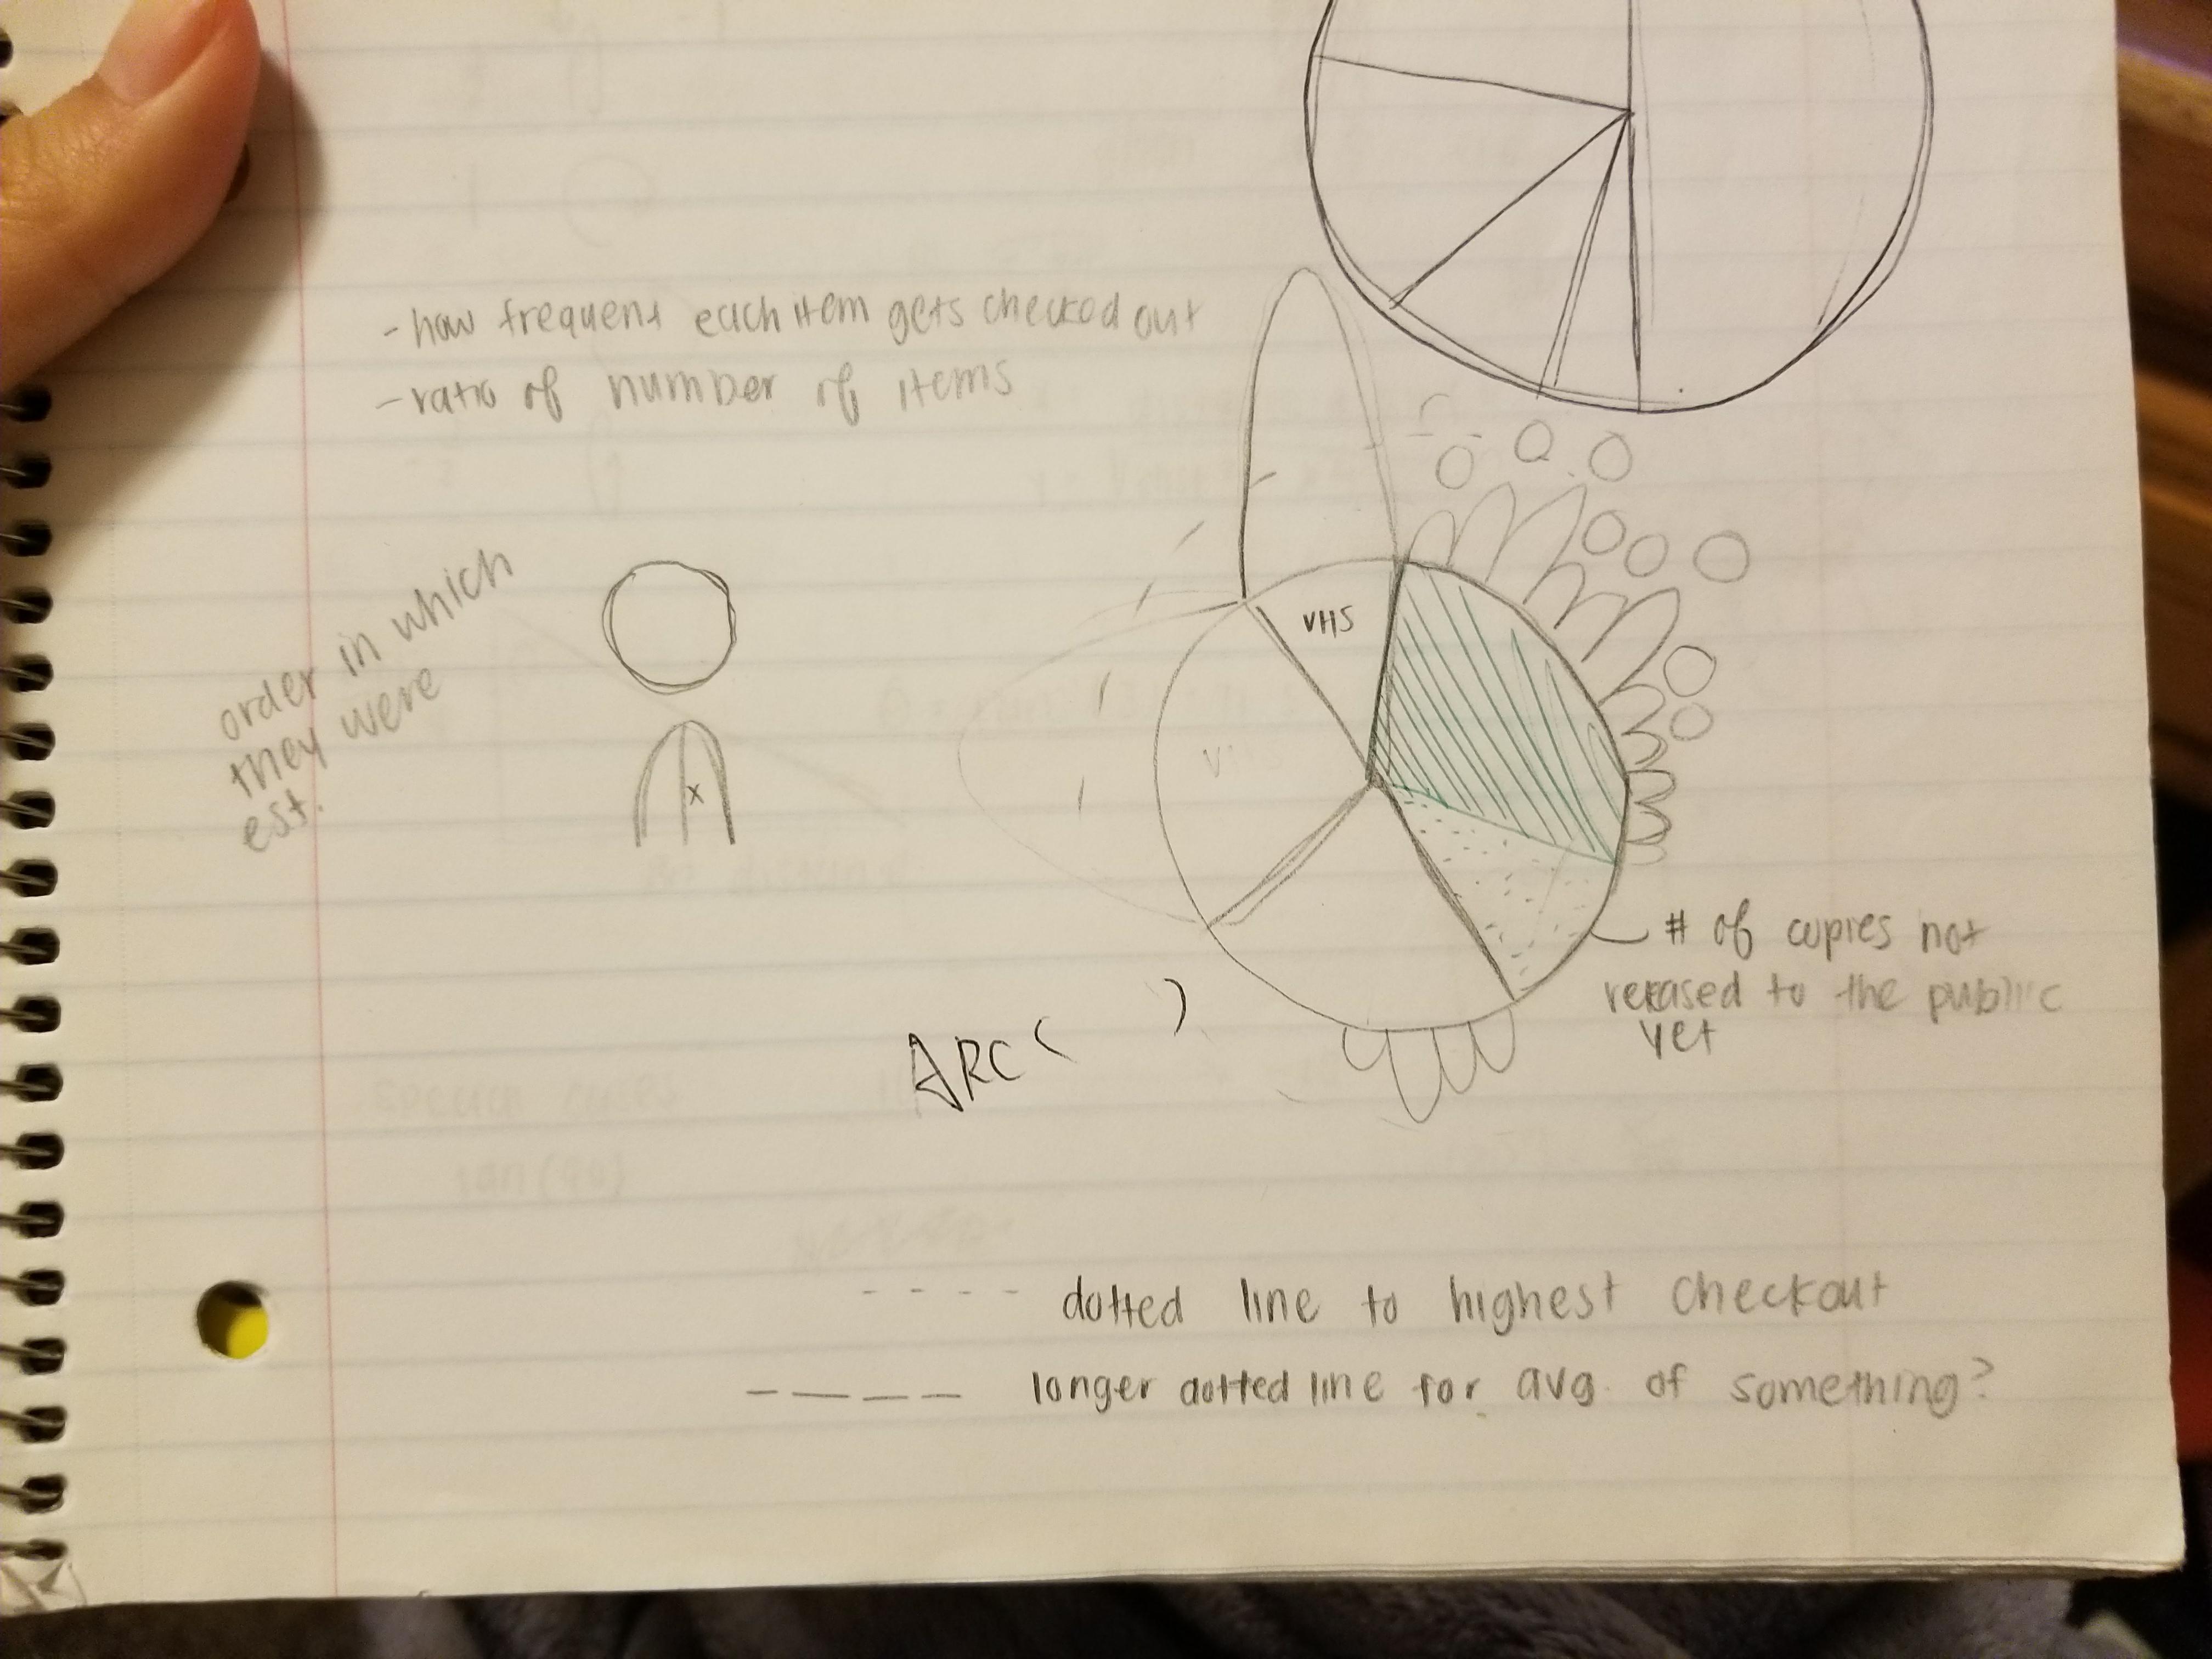 - how frequent each item gets checked out
- ratio of number of items
order in which
they were
est.
x
VHS
VHS
# of copies not
relased to the public
yet
ARC ( )
- - - - dotted line to highest checkout
- - - - longer dotted line for avg. of something?